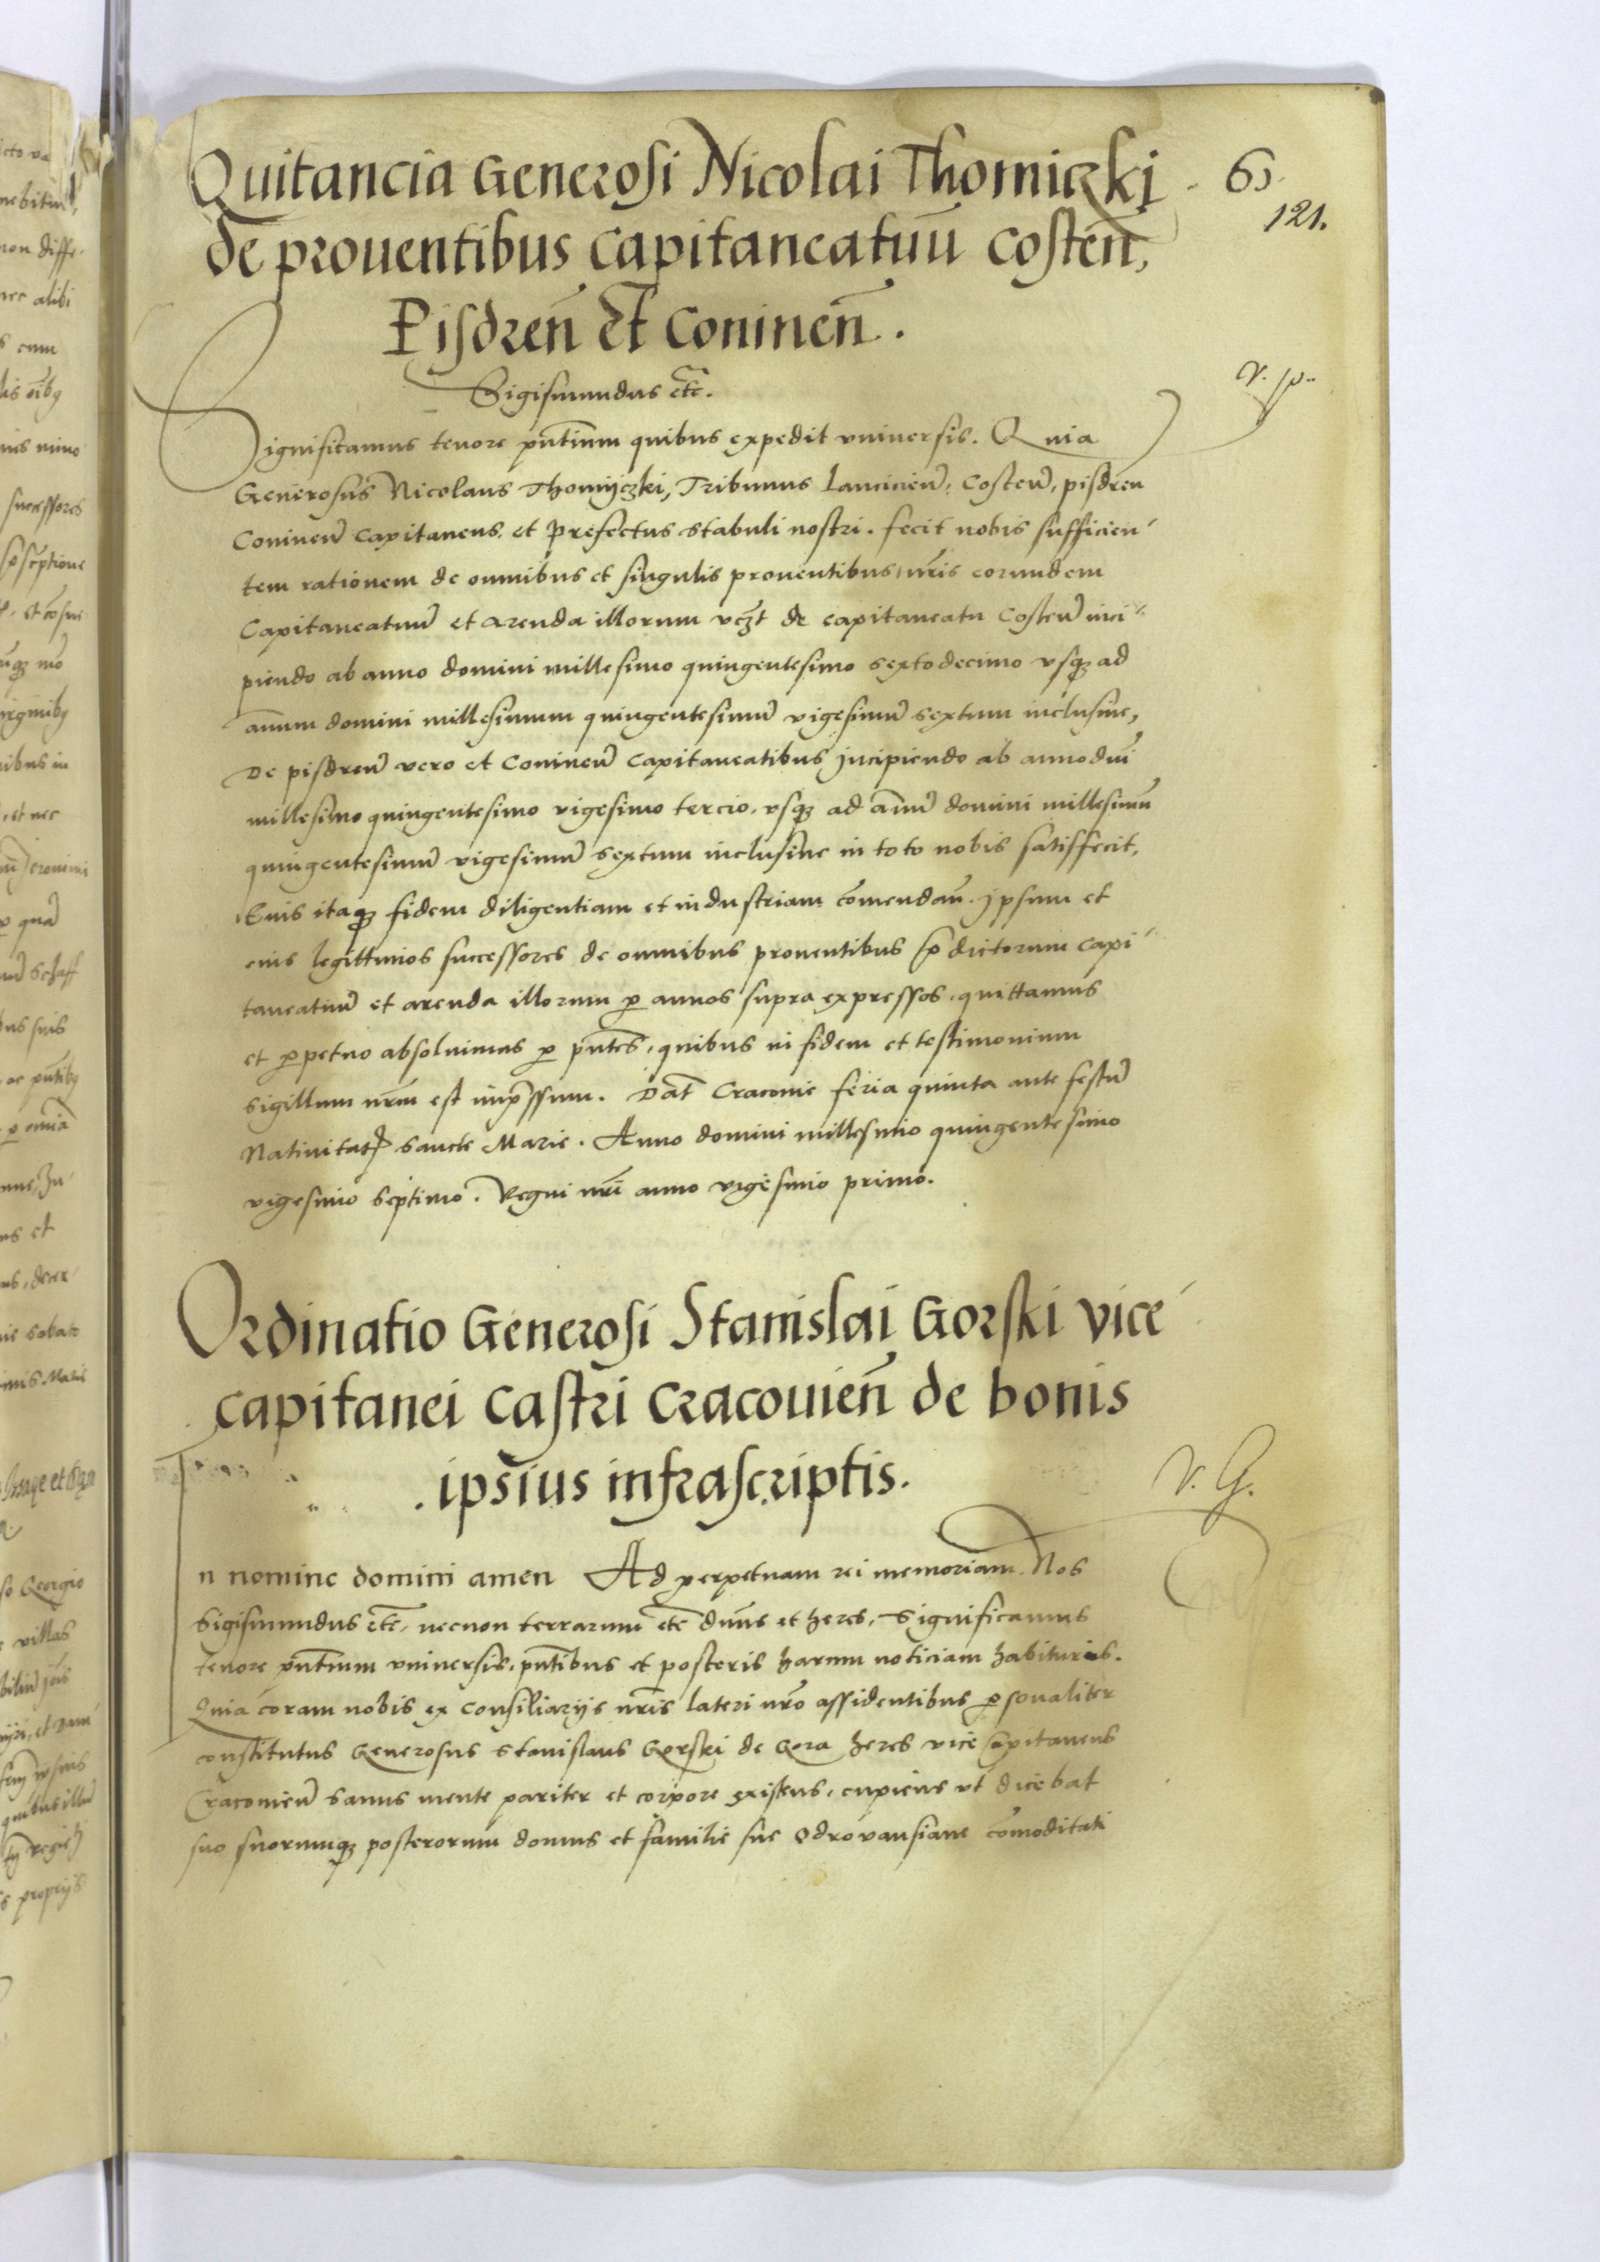 Quitancia Generosi Nicolai Thomiczki
de prouentibus capitaneatuū Costeñ,
Pisdreñ Et Conineñ.
61.
121.
Sigismundus etc̃.
Significamus tenore pñtium quibus expedit vniuersis. Quia
Generosus Nicolaus Thomyczki, Tribunus Lanicieñ, Costeñ, pisdreñ
Conineñ Capitaneus, et Prefectus stabuli nostri. fecit nobis sufficien
tem rationem de omnibus et singulis prouentibus nr̃is eorundem
Capitaneatuũ et arenda illorum vcz̃t de capitaneatu Costeñ inci
piendo ab anno domini millesimo quingentesimo sextodecimo vsqꝫ ad
annum domini millesimum quingentesimũ vigesimũ sextum inclusiue,
De pisdreñ vero et Conineñ Capitaneatibus incipiendo ab anno dñi
millesimo quingentesimo vigesimo tercio, vsqꝫ ad annũ domini millesimũ
quingentesimũ vigesimũ sextum inclusiue in toto nobis satisfecit,
Eius itaqꝫ fidem diligentiam et industriam com̃endañ. ipsum et
eius legittimos successores de omnibus prouentibus p̃dictorum Capi
taneatuũ et arenda illorum ꝑ annos supra expressos, quittamus
et ꝑpetuo absoluimus ꝑ pñtes, quibus in fidem et testimonium
sigillum nr̃m est imp̃ssum. Dat̃ Cracouie feria quinta ante festũ
Natiuitatꝭ sancte Marie. Anno domini millesimo quingentesimo
vigesimo septimo. Regni nr̃i anno vigesimo primo.
Ordinatio Generosi Stanislai Gorski vice
capitanei castri Cracouieñ de bonis
ipsius infrascriptis.
V. G.
In nomine domini amen Ad perpetuam rei memoriam. Nos
Sigismundus etc̃, necnon terrarum etc̃ dñus et heres, Significamus
tenore pñtium vniuersis, pñtibus et posteris harum noticiam habituris.
Quia coram nobis ex Consiliarijs nr̃is lateri nr̃o assidentibus ꝑsonaliter
constitutus Generosus Stanislaus Gorski de Gora heres vice capitaneus
Cracouieñ sanus mente pariter et corpore existens, cupiens vt dicebat
suo suorumqꝫ posterorum domus et familie sue Odrouansiane com̃oditati